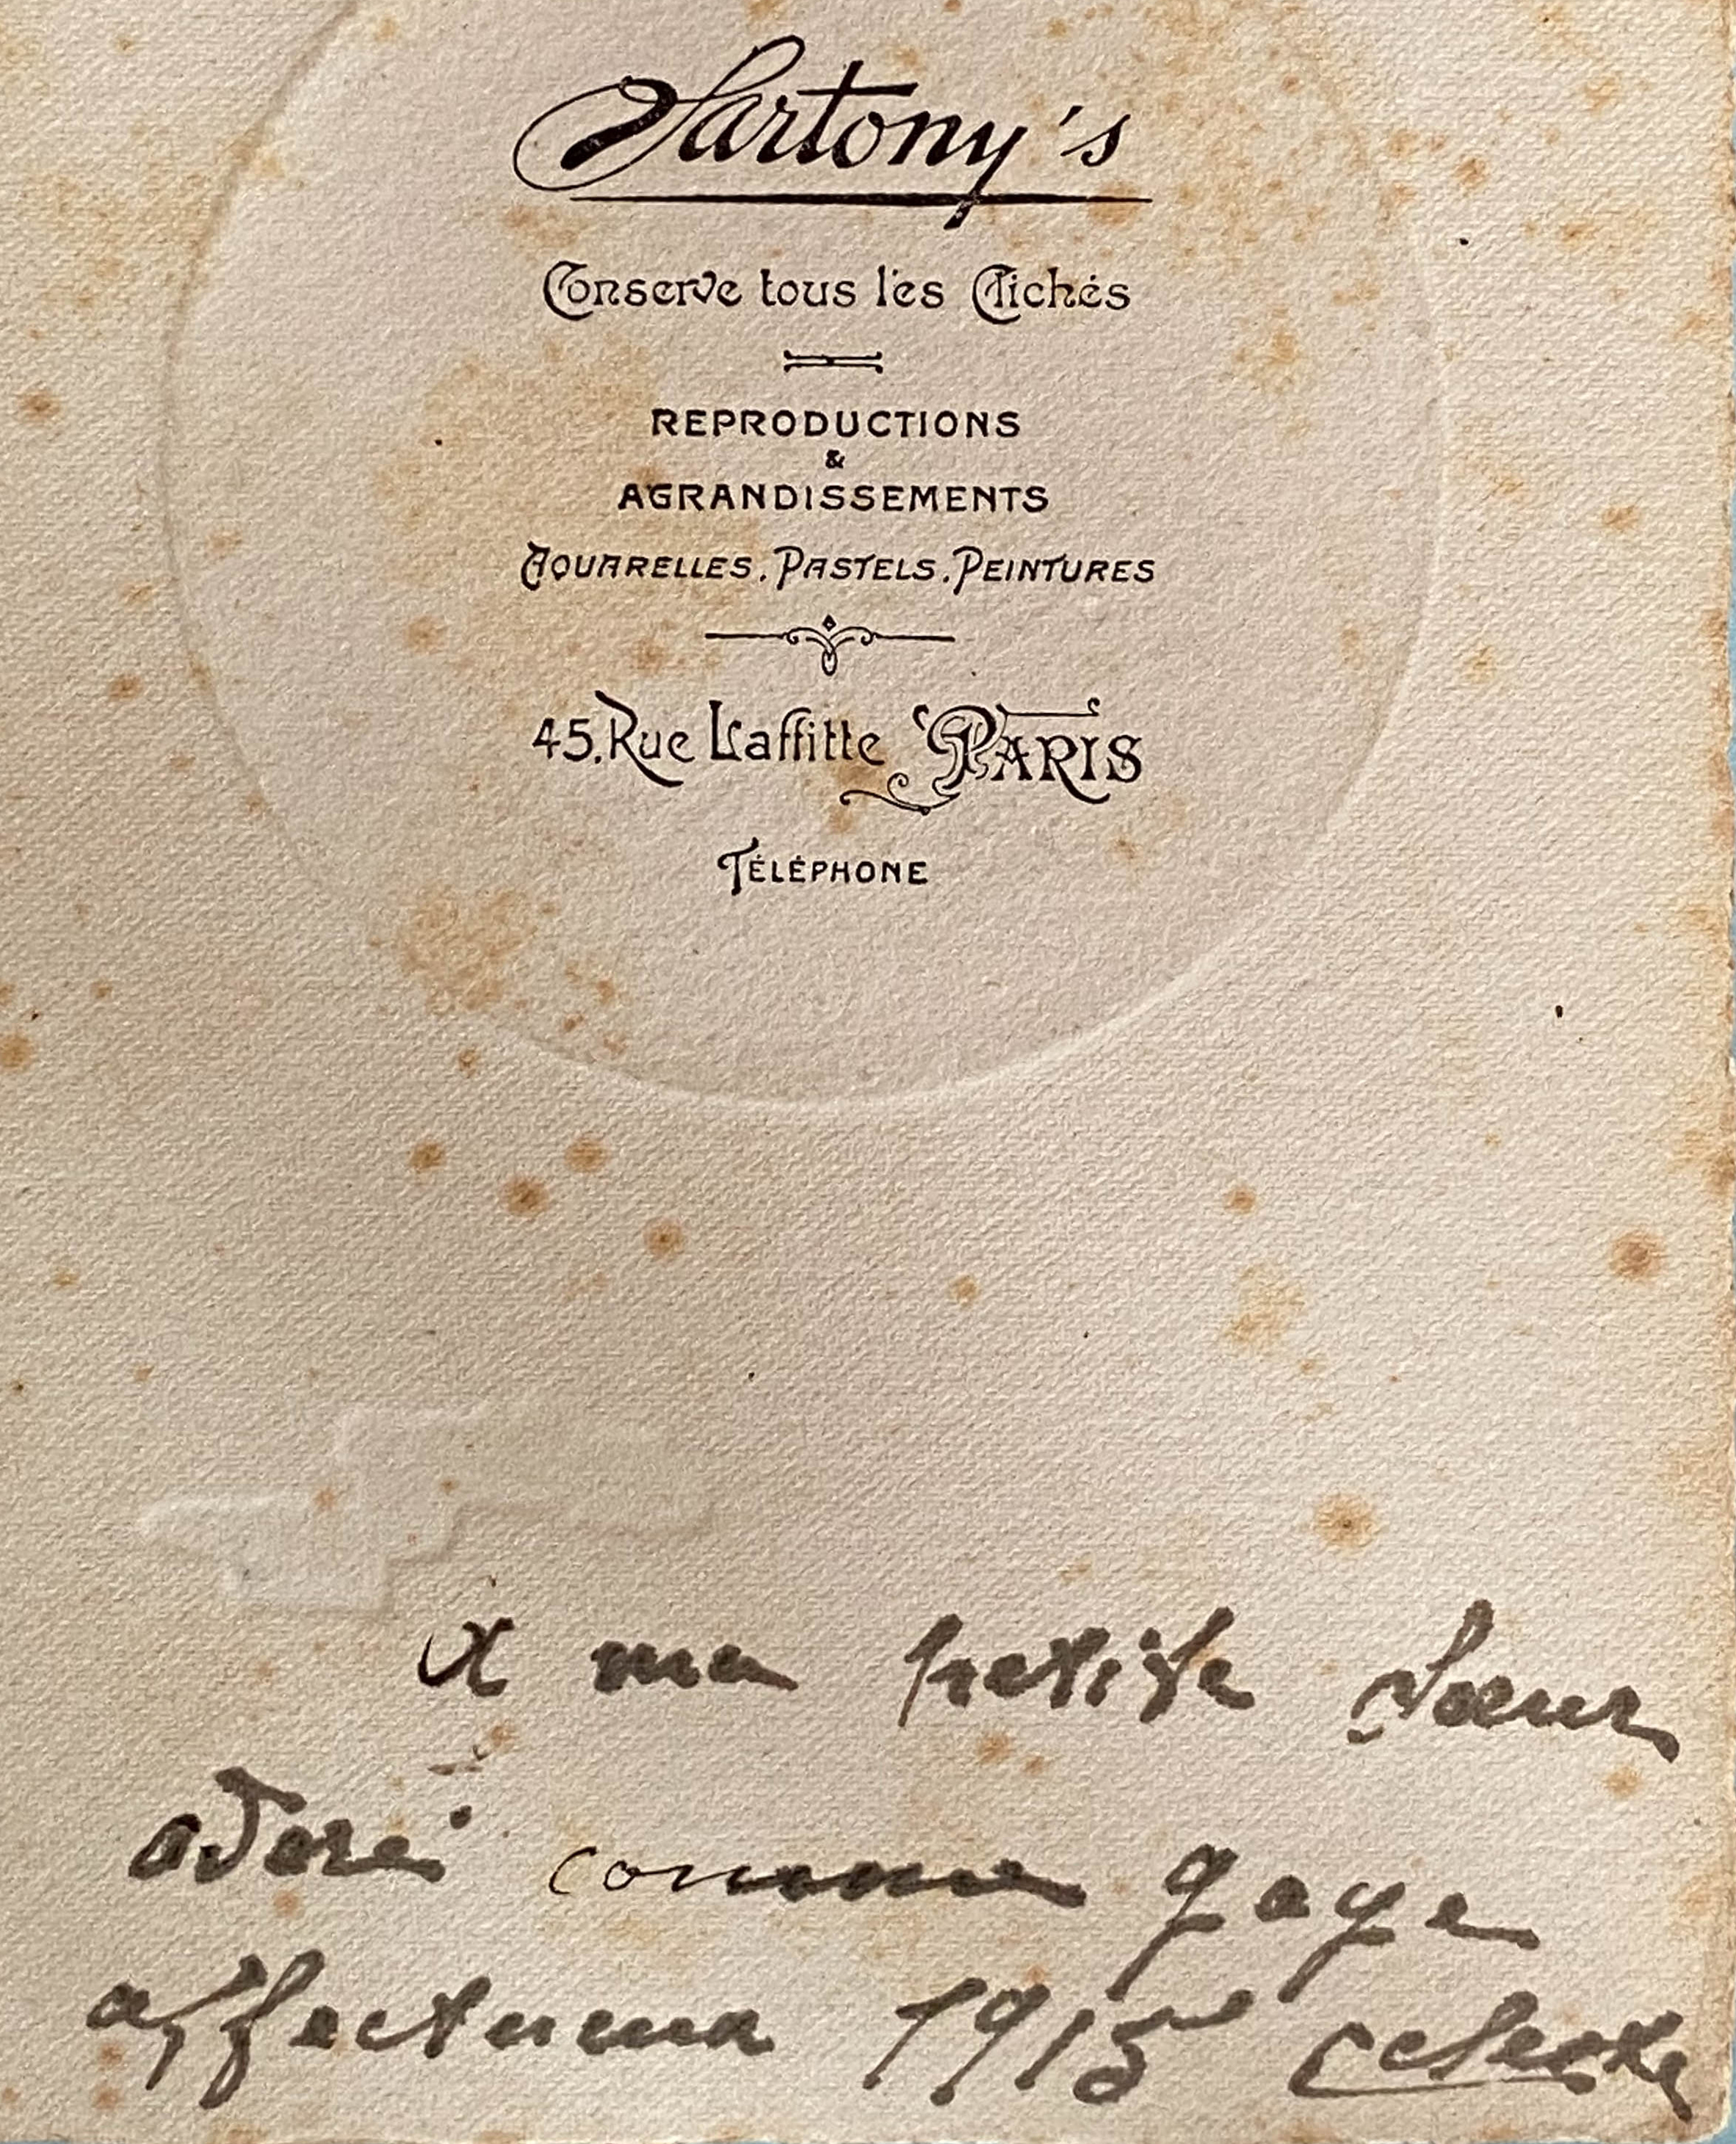 Sartony's
Conserve tous les Clichés
REPRODUCTIONS
&
AGRANDISSEMENTS
AQUARELLES. PASTELS. PEINTURES
45, Rue Laffitte PARIS
TÉLÉPHONE
A ma petite Sœur
adoré comme gage
affectueux 1915 Celeste